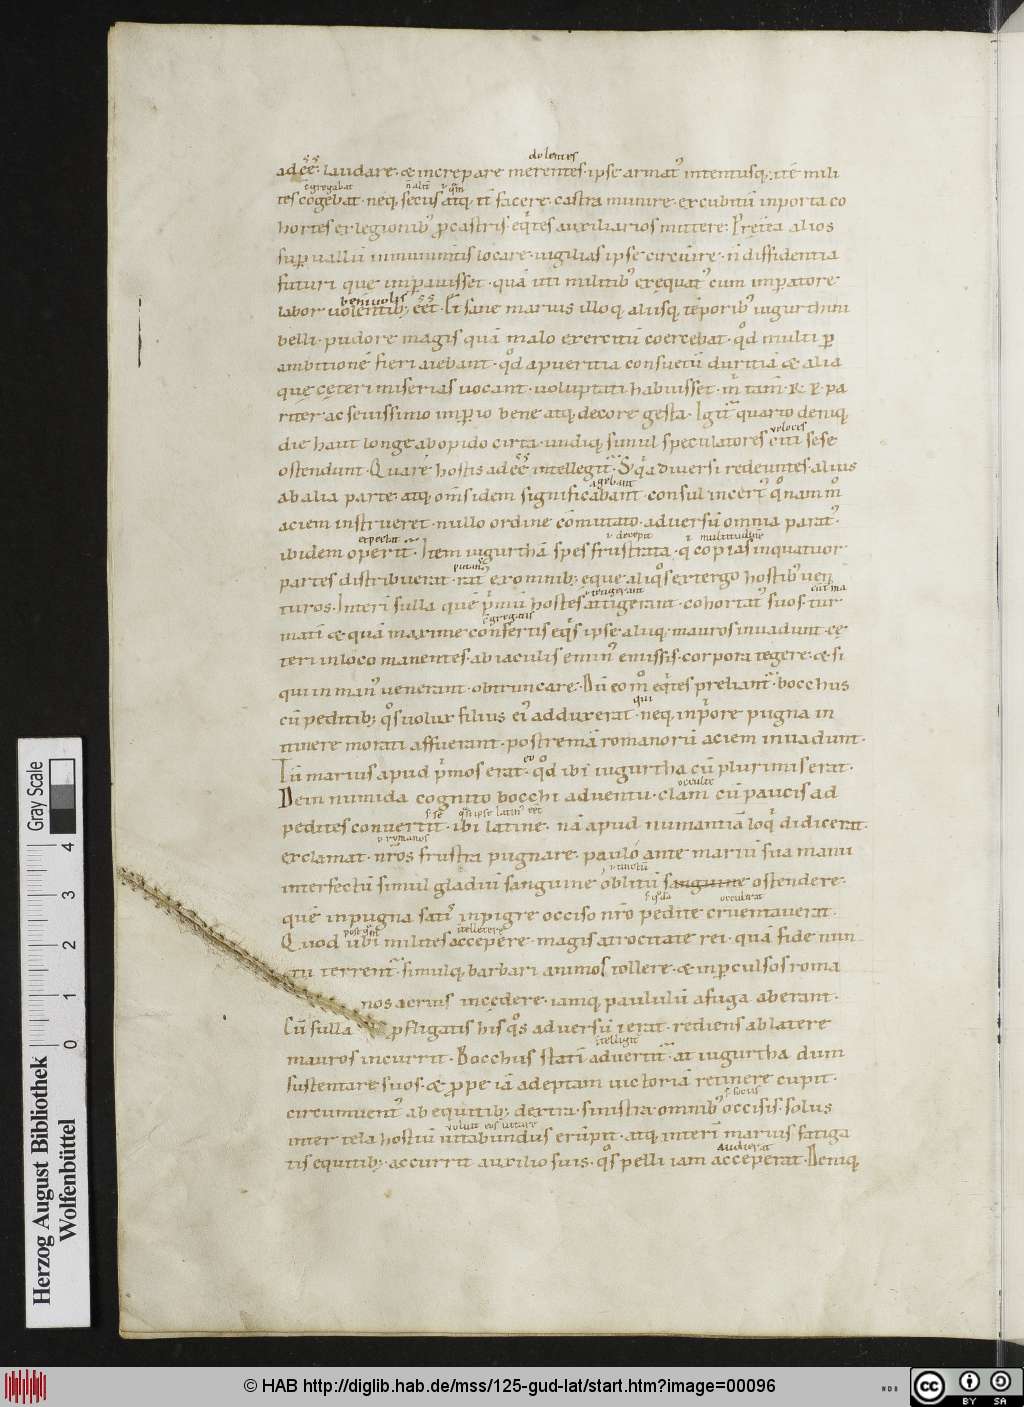 dolentes
adeē· laudare· æ increpare merentes· ipse armat᾽ intentusq;· itē mili
ēgregabat
tes cogebat· neq; secus atq; it̄ facere· castra munire· excubitū inporta co
hortes ex legionib᾽ p̄castris· eq̄tes auxiliarios mittere· Pręt̄ea alios
sup̄ vallū inmunim̄tis locare· uigilias ipse circuire· n̄ diffidentia
futuri que imp̄auisset· quā uti militib᾽ exequat᾽ cum imp̄atore
beniuolis
labor uolentib; eēt· Et sane marius illoq; aliisq; tēporib᾽ iugurthini
belli· pudore magis quā malo exercitū coercebat· qd̄ multi p̄
ambitionē fieri aiebant· qd̄ apueritia consuetū duritiā æ alia
que ceteri miserias uocant· uoluptati habuisset· n̄ tam̄· R· P· pa
riter ac seuissimo imp̄io bene atq; decore gesta· Igit̄ quarto deniq;
ueloces
die haut longe abopido cirta· undiq; simul speculatores citi sese
ostendunt· Quarē hostis adeē intellegit̄· S; q̄a diuersi redeuntes· alius
agebant
abalia parte· atq; om̄s idem significabant· consul incert᾽ qn̄am m̄
aciem instrueret· nullo ordine cōmutato· aduersū omnia parat᾽
expectat · decepit multitudinē
ibidem operit̄· Item iugurthā spes frustrata· q̄ copias inquatuor
partes distribuerat· rat᾽ ex omnib; eque aliqo᾽s extergo hostib᾽ uen
turos· Interī sulla quē p̄mū hostes attigerant· cohortat᾽ suos· tur
matī æ quā maxime confertis eq̄s ipse aliiq; mauros inuadunt· ce
teri inloco manentes· ab iaculis emin᾽ emissis· corpora tegere· æ si
qui in man᾽ uenerant· obtruncare· Dū eo m̄ eq̄tes preliant̄· bocchus
qui
cū peditib; qo᾽s uolux filius ei᾽ adduxerat· neq; inp̄ore pugna in
itinere morati affuerant· postremā romanorū aciem inuadunt·
Tū marius apud p̄mos erat· qd̄ ibi iugurtha cū plurimis erat·
occulte
Dein numida cognito bocchi aduentu· clam cū paucis ad
pedites conuertit· ibi latine· nā apud numantiā loq̄ didicerat·
romanos
exclamat· nr̄os frustra pugnare· paulo ante mariū sua manu
interfectū simul gladiū sanguine oblitū sanguine ostendere·
quē inpugna sati᾽ inpigre occiso nr̄o pedite cruentauerat·
Quod ubi milites accepere· magis atrocitate rei· quā fide nun
tii terrent̄· simulq; barbari animos tollere· æ inp̄culsos roma
nos acrius incedere· iamq; paululū afuga aberant·
Cū sulla p̄fligatis his qo᾽s aduersū ierat· rediens ablatere
mauros incurrit· Bocchus statī aduertit̄· at iugurtha dum
sustentare suos· æ p̄pe iā adeptam uictoriā retinere cupit·
circumuent᾽ ab equitib; dextra· sinistra· omnib᾽ occisis· solus
inter tela hostiū uitabundus erūpit· atq; interī marius fatiga
audierat
tis equitib; accurrit auxilio suis· qo᾽s pelli iam acceperat· Deniq;
Gray Scale
0 1 2 3 4
Herzog August Bibliothek
Wolfenbüttel
© HAB http://diglib.hab.de/mss/125-gud-lat/start.htm?image=00096
cc BY SA